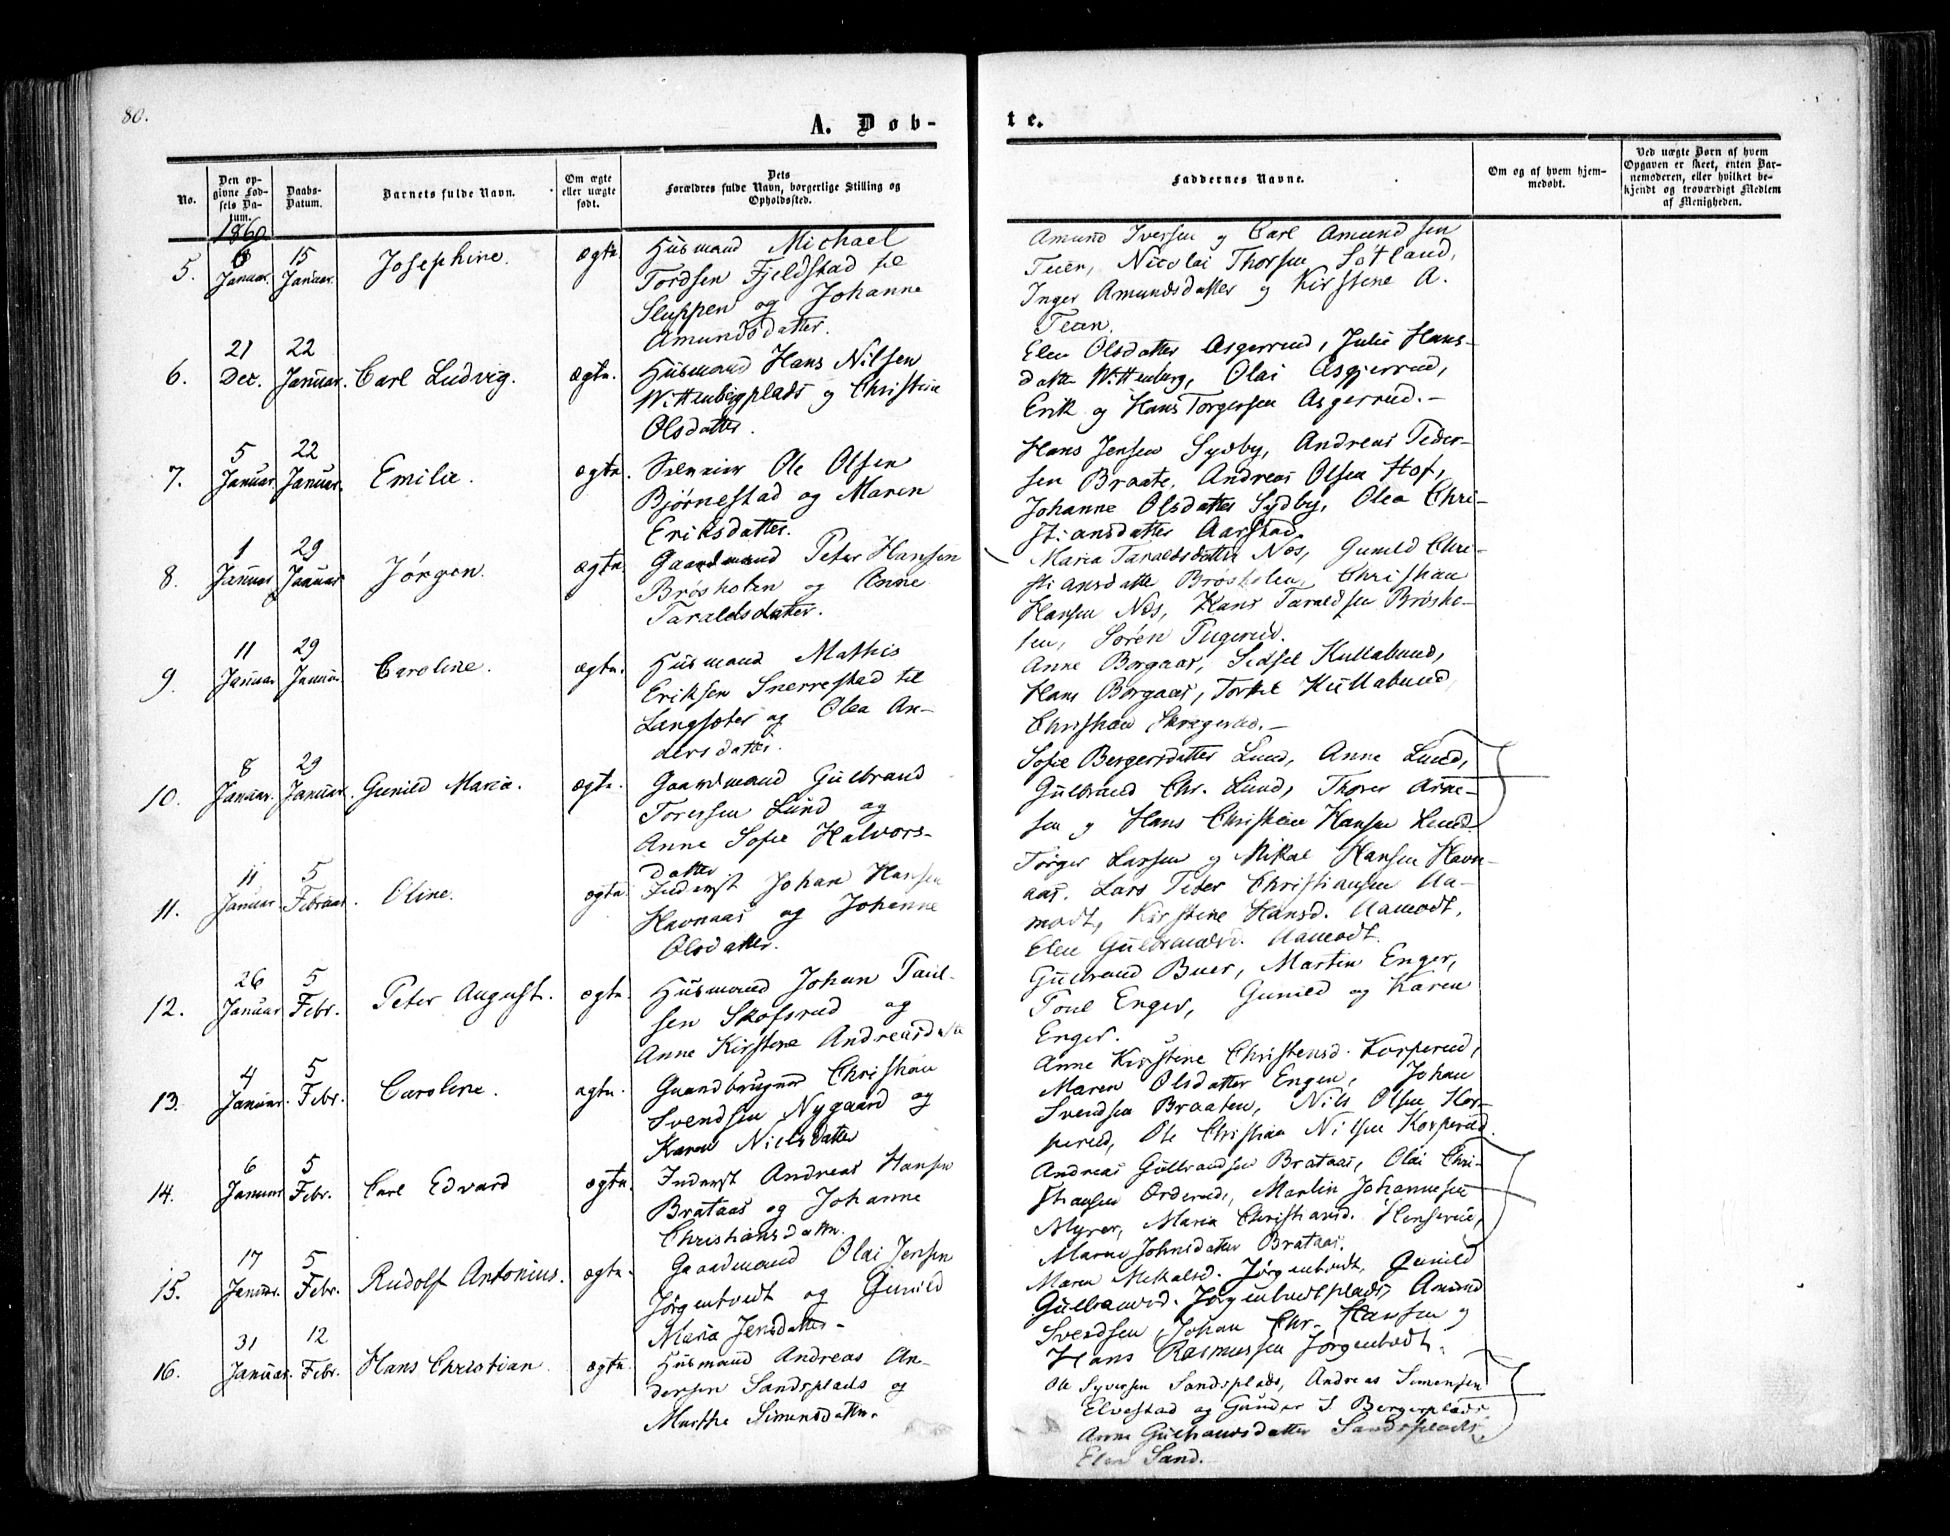 80.
A. Døb-
te.
No.
Den op-
givne Fød-
sels Da-
tum.
Daabs-
Datum.
Barnets fulde Navn.
Om ægte
eller uægte
født.
Dets
Forældres fulde Navn, borgerlige Stilling og
Opholdssted.
Faddernes Navne.
Om og af hvem hjem-
medøbt.
Ved uægte Børn af hvem
Opgaven er skeet, enten Bar-
nemoderen, eller hvilket be-
kjendt og troværdigt Medlem
af Menigheden.
1860
5. 6 Januar. 15 Januar. Josephine. ægte.
Husmand Michael
Tordsen Fjeldstad til
Sluppen og Johanne
Amundsdatter.
Amund Iversen og Carl Amundsen
Teien, Nicolai Thorsen
Inger Amundsdatter og Kirstine A.
6. 21 Dec. 22 Januar. Carl Ludvig. ægte.
Husmand Hans Nilsen
Wittenbergplads og Christine
Olsdatter.
Elen Olsdatter Asgerrud, Julie Hans-
datter Wittenberg, Olai Asgjerrud,
Erik og Hans Torgersen Asgerrud.-
7. 5 Januar. 22 Januar. Emilie. ægte.
Ole Olsen
Bjørnestad og Maren
Eriksdatter.
Hans Jensen Sydby, Andreas Peder-
sen Braate, Andreas Olsen Hof,
Johanne Olsdatter Sydby, Olea Chri-
stiansdatter Aarstad.
8. 1 Januar 29 Januar Jørgen. ægte.
Gaardmand Peter Hansen
Brøsholen og Anne
Taraldsdatter.
Maria Taraldsdatter Næs, Gunild Chri-
stiansdatter Brøsholen, Christian
Hansen Næs, Hans Taraldsen Brøsho-
len, Søren
9. 11 Januar 29 Januar Caroline. ægte.
Husmand Mathis
Eriksen Snerrestad til
Langsæter og Olea An-
dersdatter.
Anne Borgaas, Sidsel Kullabund,
Hans Borgaas, Torkil Kullabund,
Christian
10. 8 Januar. 29 Januar. Gunild Maria. ægte.
Gaardmand Gulbrand
Toresen Lund og
Anne Sofie Halvors-
datter
Sofie Bergersdatter Lund, Anne Lund,
Gulbrand Chr. Lund, Thorer Arne-
sen og Hans Christian Hansen Lund.
11. 11 Januar 5 Februar. Oline. ægte.
Inderst Johan Hansen
Havnaas og Johanne
Olsdatter.
Torger Larsen og Mikal Hansen Havn-
aas, Lars Peder Christiansen Aa-
modt, Kirstine Hansd. Aamodt,
Elen Gulbrandsd. Aamodt.
12. 26 Januar 5 Febr. Peter August. ægte.
Husmand Johan Paul-
sen Skofsrud og
Anne Kirstine Andreasdatter
Gulbrand Buer, Martin Enger,
Poul Enger, Gunild og Karen
Enger.
13. 4 Januar. 5 Febr. Caroline. ægte.
Gaardbruger Christian
Svendsen Nygaard og
Karen Nielsdatter
Anne Kirstine Christensd. Korperud,
Maren Olsdatter Engen, Johan
Svendsen Braaten, Nils Olsen Kor-
perud, Ole Christian Nilsen Korperud.
14. 6 Januar 5 Febr. Carl Edvard ægte.
Inderst Andreas Hansen
Brataas og Johanne
Christiansdatter.
Andreas Gulbrandsen Brataas, Olai Chri-
stiansen Ørderud, Martin Johannesen
Myrer, Maria Christiansd.
Maren Johnsdatter Brataas.
15. 17 Januar. 5 Febr. Rudolf Antonius. ægte.
Gaardmand Olai Jensen
Jørgentvedt og Gunild
Maria Jensdatter.-
Maren Mikalsd. Jørgentvedt, Gunild
Gulbrandsd. Jørgentvedtplads, Amund
Svendsen, Johan Chr. Hansen og
Hans Rasmussen Jørgentvedt.
16. 31 Januar. 12 Febr. Hans Christian. ægte.
Husmand Andreas An-
dersen Sandsplads og
Marthe Simensdatter.
Ole Syversen Sandsplads, Andreas Simensen
Elvestad og Gunder S. Bergersplads
Anne Gulbrandsdatter Sandsplads,
Elen Sand.-